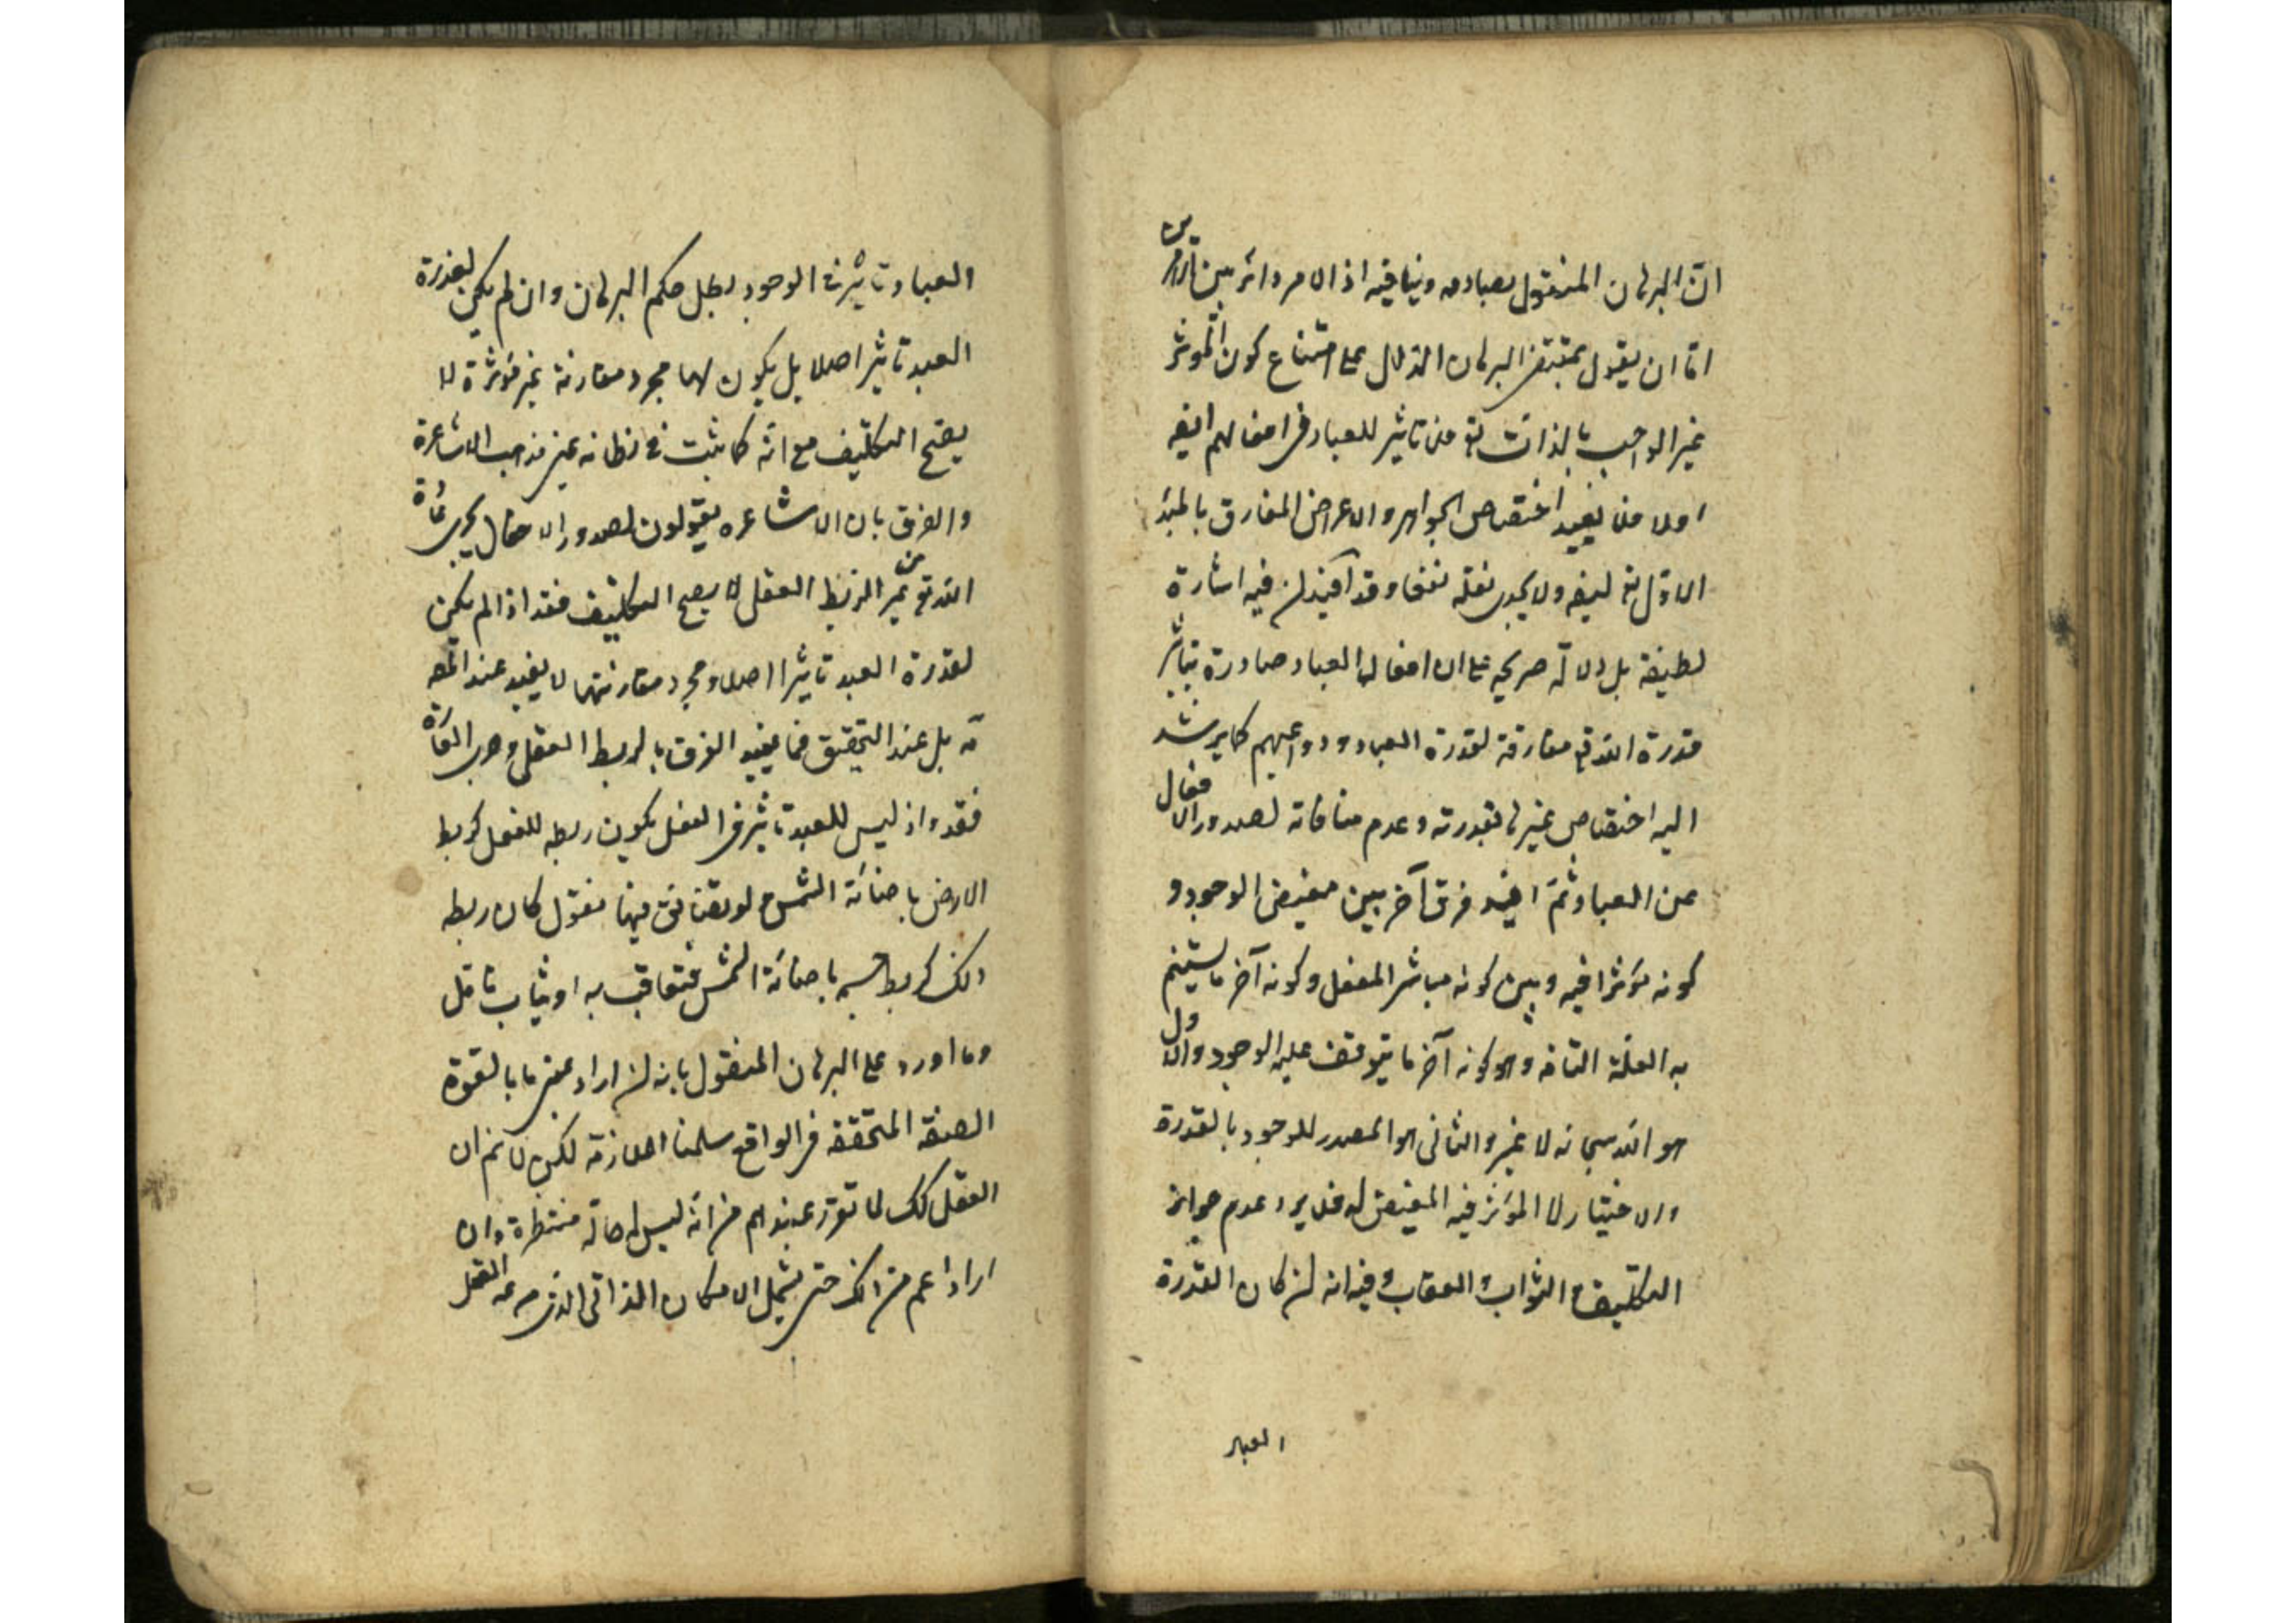 انّ البرهان المنقول يصادمه وينافيه اذ الامر دائر بين امرين
امّا ان يقول بمقتضى البرهان الدال على امتناع كون المؤثر
غير الواجب بالذات فلا من تاثير للعباد في افعالهم ايضه
اولا من يفيد اختصاص الجواهر والاعراض المفارق بالمبدء
الاوّل تع ليفه ولا يجدى نقله نفعا وقد افيد ان فيه اشارة
لطيفة بل دلالة صريحه على ان افعال العباد صادرة بتاثير
قدرة الله تع مقارنة لقدرة العباد ودواعيهم كما يرشد
اليه اختصاص غيرها بقدرته وعدم منافاته لصدور الافعال
عن العباد ثمّ افيد فرق آخر بين مفيض الوجود و
كونه مؤثرا فيه وبين كونه مباشر الفعل وكونه آخر ما يستتم
به العلّة التامه وهو كونه آخر ما يتوقف عليه الوجود والاول
هو الله سبحانه لا غير والثانى هو المصدر للوجود بالقدرة
والاختيار لا المؤثر فيه المفيض له فلا يرد عدم جواز
التكليف والثواب والعقاب وفيه انه ان كان لقدرة
العباد
العباد تاثير في الوجود بطل حكم البرهان وان لم يكن لقدرة
العبد تاثير اصلا بل يكون لها مجرد مقارنة غير مؤثرة لا
يصح التكليف مع انّه كما يثبت في مظانه عين مذهب الاشاعرة
والفرق بان الاشاعره يقولون لصدور الافعال بجرى عادة
الله تع من غير الربط العقلى لا يصح التكليف فقد اذا لم يكن
لقدرة العبد تاثيرا اصلا ومجرد مقارنتها لا يفيد عند المص
ـه بل عند التحقيق فما يفيد الفرق بالربط العقلى وجرى العادة
فقد واذ ليس للعبد تاثير في الفعل يكون ربطه للفعل كربط
الارض باضائة الشمس ولو يناقش فيها فنقول كان ربطه
ذلك كربط جسم باضائة الشمس فيعاقب به او يثاب تامّل
وما اورد على البرهان المنقول بانه ان اراد بمعنى ما بالقوة
الصفة المتحققه في الواقع سلمنا الملازمة لكن لا نم ان
العقل كك لما تقرر عندهم من انّه ليس له حالة منتظرة وان
اراد اعم من ذلك حتى يشمل الامكان الذاتى الذى مرجعه العقل